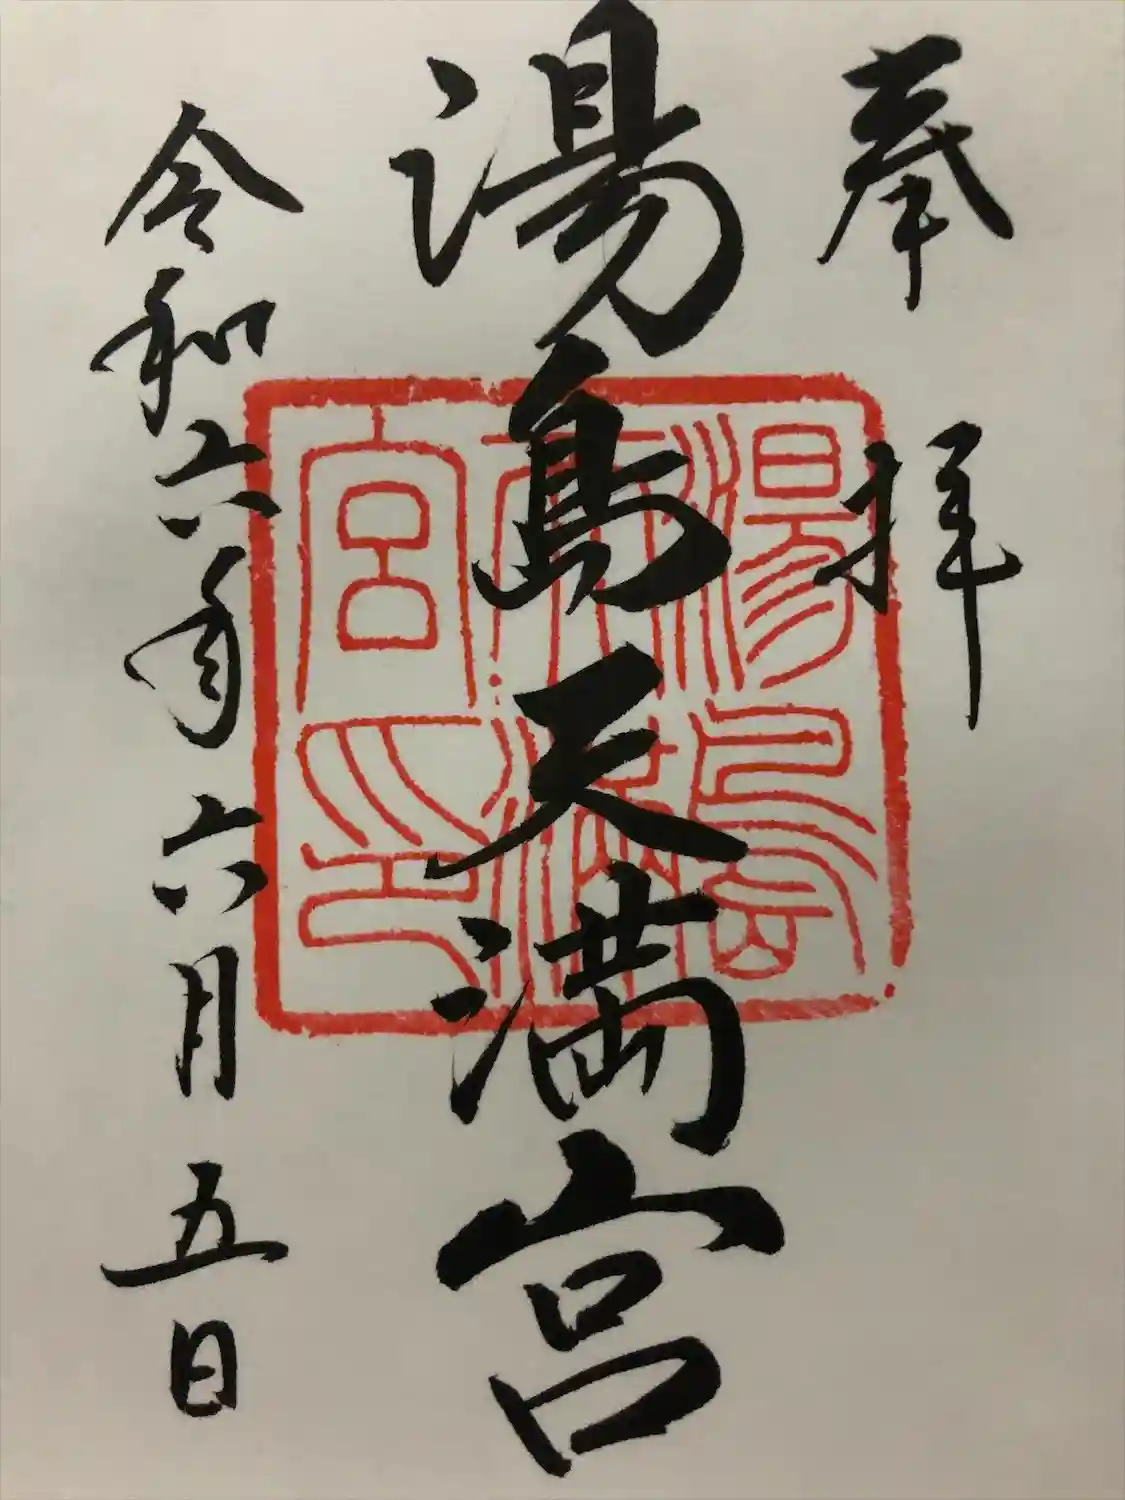 奉拝
湯島天満宮
令和六年六月五日
湯島
天満
宮印